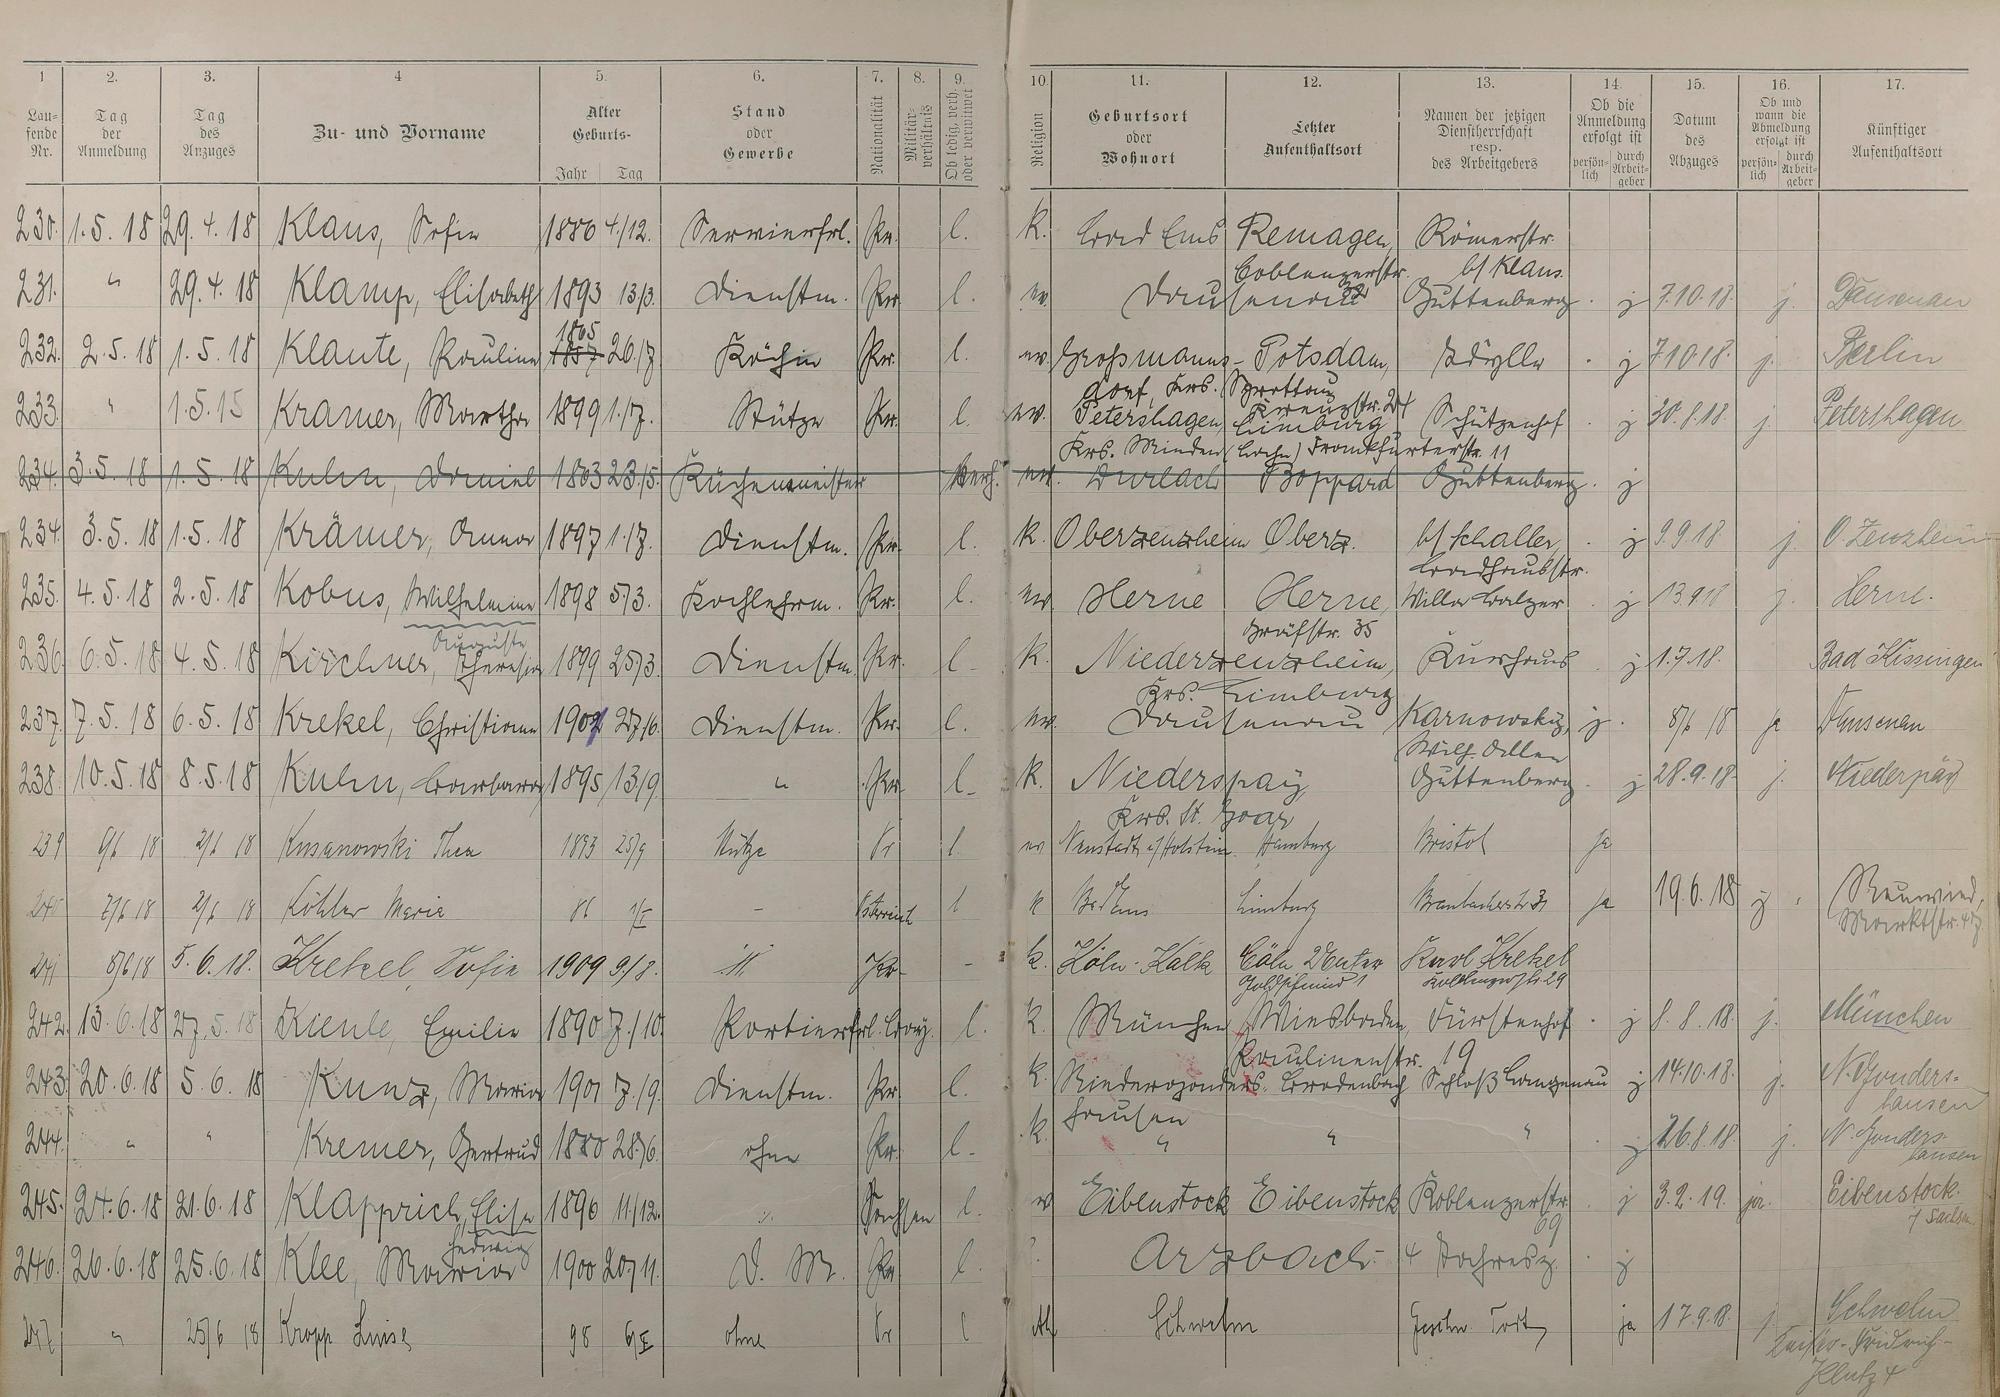 1 2. 3. 4 5. 6. 7. 8. 9. 10. 11. 12. 13. 14. 15. 16. 17.
Laufende Nr. Tag der Anmeldung Tag des Anzuges Zu- und Vorname Alter Geburts- Jahr Tag Stand oder Gewerbe Nationalität Militärverhältnis Ob ledig, verh. oder verwitwet Religion Geburtsort oder Wohnort Letzter Aufenthaltsort Namen der jetzigen Dienstherrschaft resp. des Arbeitgebers Ob die Anmeldung erfolgt ist persönlich durch Arbeitgeber Datum des Abzuges Ob und wann die Abmeldung erfolgt ist persönlich durch Arbeitgeber Künftiger Aufenthaltsort
230. 1.5.18 29.4.18 Klaus, Sofie 1880 4/12. Servierfrl. Pr. l. K. Bad Ems Remagen, Römerstr.
Coblenzerstr. b/ Klaus.
231. " 29.4.18 Klamp, Elisabeth 1893 13/3. Dienstm. Pr. l. ev. Dausenau Guttenberg . j 7.10.18. j. Dausenau
1865
232. 2.5.18 1.5.18 Klaute, Pauline 1857 26/7. Köchin Pr. l. ev. Großmanns- Potsdam, Idylle . j 7.10.18. j. Berlin
dorf, Krs. Sprottau Kreuzstr. 24
233. " 1.5.15 Kramer, Martha 1899 1./7. Stütze Pr. l. ev. Petershagen, Limburg Schützenhof . j 30.8.18. j Petershagen
Krs. Minden (Lahn) Frankfurterstr. 11
234. 3.5.18 1.5.18 Kuhn, Daniel 1863 23/5. Küchenmeister verh. ev. Durlach Boppard Guttenberg . j
234. 3.5.18 1.5.18 Krämer, Anna 1897 1./7. Dienstm. Pr. l. K. Oberzeuzheim Oberz. b/ Schaller, . j 9.9.18. j. O. Zeuzheim
Badhausstr.
235. 4.5.18 2.5.18 Kobus, Wilhelmine 1898 5/3. Kochlehrm. Pr. l. ev Herne Herne, Villa Balzer . j 13.9.18 j. Herne.
Auguste Gräfstr. 35
236. 6.5.18 4.5.18 Kirchner, Theresia 1899 25/3. Dienstm. Pr. l. K. Niederzeuzheim, Kurhaus . j 1.7.18. Bad Kissingen
Krs. Limburg
237. 7.5.18 6.5.18 Krekel, Christiane 1902 27/6. Dienstm. Pr. l. ev. Dausenau Karnowsky, j . 8/6 18 ja Dausenau
Wilh. Allee
238. 10.5.18 8.5.18 Kuhn, Barbara 1895 13/9. " Pr. l. K. Niederspay Guttenberg . j 28.9.18. j. Niederspay
Krs. St. Goar
239 6/6 18 2/6 18 Kusanowski Thea 1893 25/9 Stütze Pr l. ev Neustadt i/Holstein Hamburg Bristol ja
240 7/6 18 2/6 18 Köhler Maria 86 1/I – Österreich l K Bad Ems Limburg Braubacherstr 31 ja 19.6.18 j . Neuwied,
Marktstr. 47
241 8/6 18 5.6.18. Krekel, Sofie 1909 9/8. Pr. - K. Köln-Kalk Cöln Deutz Karl Krekel
Koblenzerstr. 29
242. 13.6.18 27.5.18 Kienle, Emilie 1890 7./10. Portierfrl. Bay. l. K. München Wiesbaden, Fürstenhof . j 8.8.18. j. München
Paulinenstr. 19
243. 20.6.18 5.6.18 Kunz, Maria 1901 7./9. Dienstm. Pr. l. K. Niedergonders- Bradenbach Schloß Langenau j 14.10.18. j. N. Gonders-
hausen hausen
244. " " Kremer, Gertrud 1880 28/6. ohne Pr. l. K. " " " . j 26.8.18. j. N. Gonders-
hausen
245. 24.6.18 21.6.18 Klapprich, Elise 1896 11/12. " Sachsen l. ev Eibenstock Eibenstock Koblenzerstr. . j 3.2.19. ja. Eibenstock.
Hedwig 69 i/ Sachsen
246. 26.6.18 25.6.18 Klee, Maria 1900 20/11. D. M. Pr l. ? Arzbach. 4 . j
247 " 25/6 18 Kropp Luise 98 6/X ohne Pr l Schwelm Geschw. ja 17.9.18. j Schwelm
Kaiser-Friedrich-